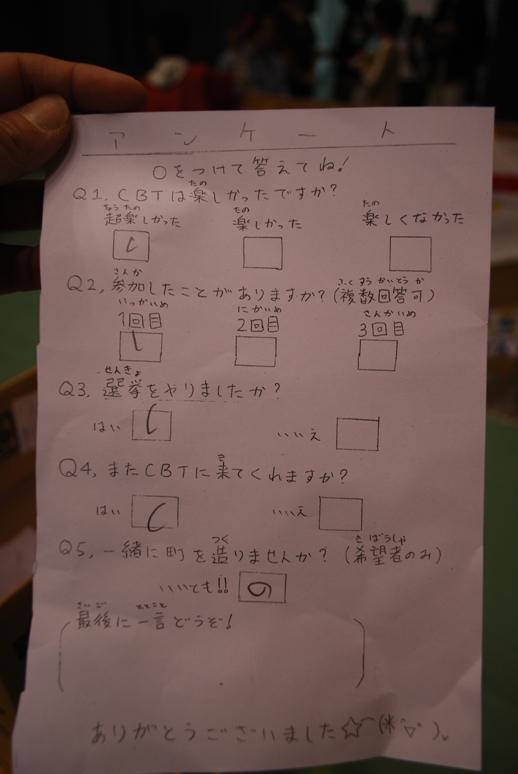 アンケート
○をつけて答えてね!
Q1, CBTは楽しかったですか?
超楽しかった 楽しかった 楽しくなかった
Q2, 参加したことがありますか?(複数回答可)
1回目 2回目 3回目
Q3, 選挙をやりましたか?
はい いいえ
Q4, またCBTに来てくれますか?
はい いいえ
Q5, 一緒に町を造りませんか?(希望者のみ)
いいとも!!
最後に一言どうぞ!
ありがとうございました☆